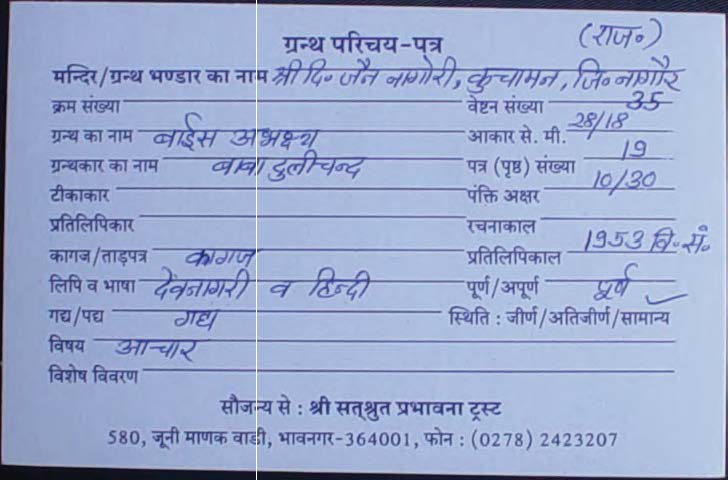 ग्रन्थ परिचय-पत्र (राज॰)
मन्दिर/ग्रन्थ भण्डार का नाम श्री दि॰ जैन नागोरी, कुचामन, जि॰ नागौर
क्रम संख्या वेष्टन संख्या 35
ग्रन्थ का नाम बाईस अभक्ष्य आकार से. मी. 28/18
ग्रन्थकार का नाम बाबा दुलीचन्द पत्र (पृष्ठ) संख्या 19
टीकाकार पंक्ति अक्षर 10/30
प्रतिलिपिकार रचनाकाल
कागज/ताड़पत्र कागज प्रतिलिपिकाल 1953 वि॰ सं॰
लिपि व भाषा देवनागरी व हिन्दी पूर्ण/अपूर्ण पूर्ण
गद्य/पद्य गद्य स्थिति : जीर्ण/अतिजीर्ण/सामान्य ✓
विषय आचार
विशेष विवरण
सौजन्य से : श्री सत्श्रुत प्रभावना ट्रस्ट
580, जूनी माणक वाडी, भावनगर-364001, फोन : (0278) 2423207